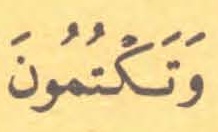 وَتَكْتُمُونَ